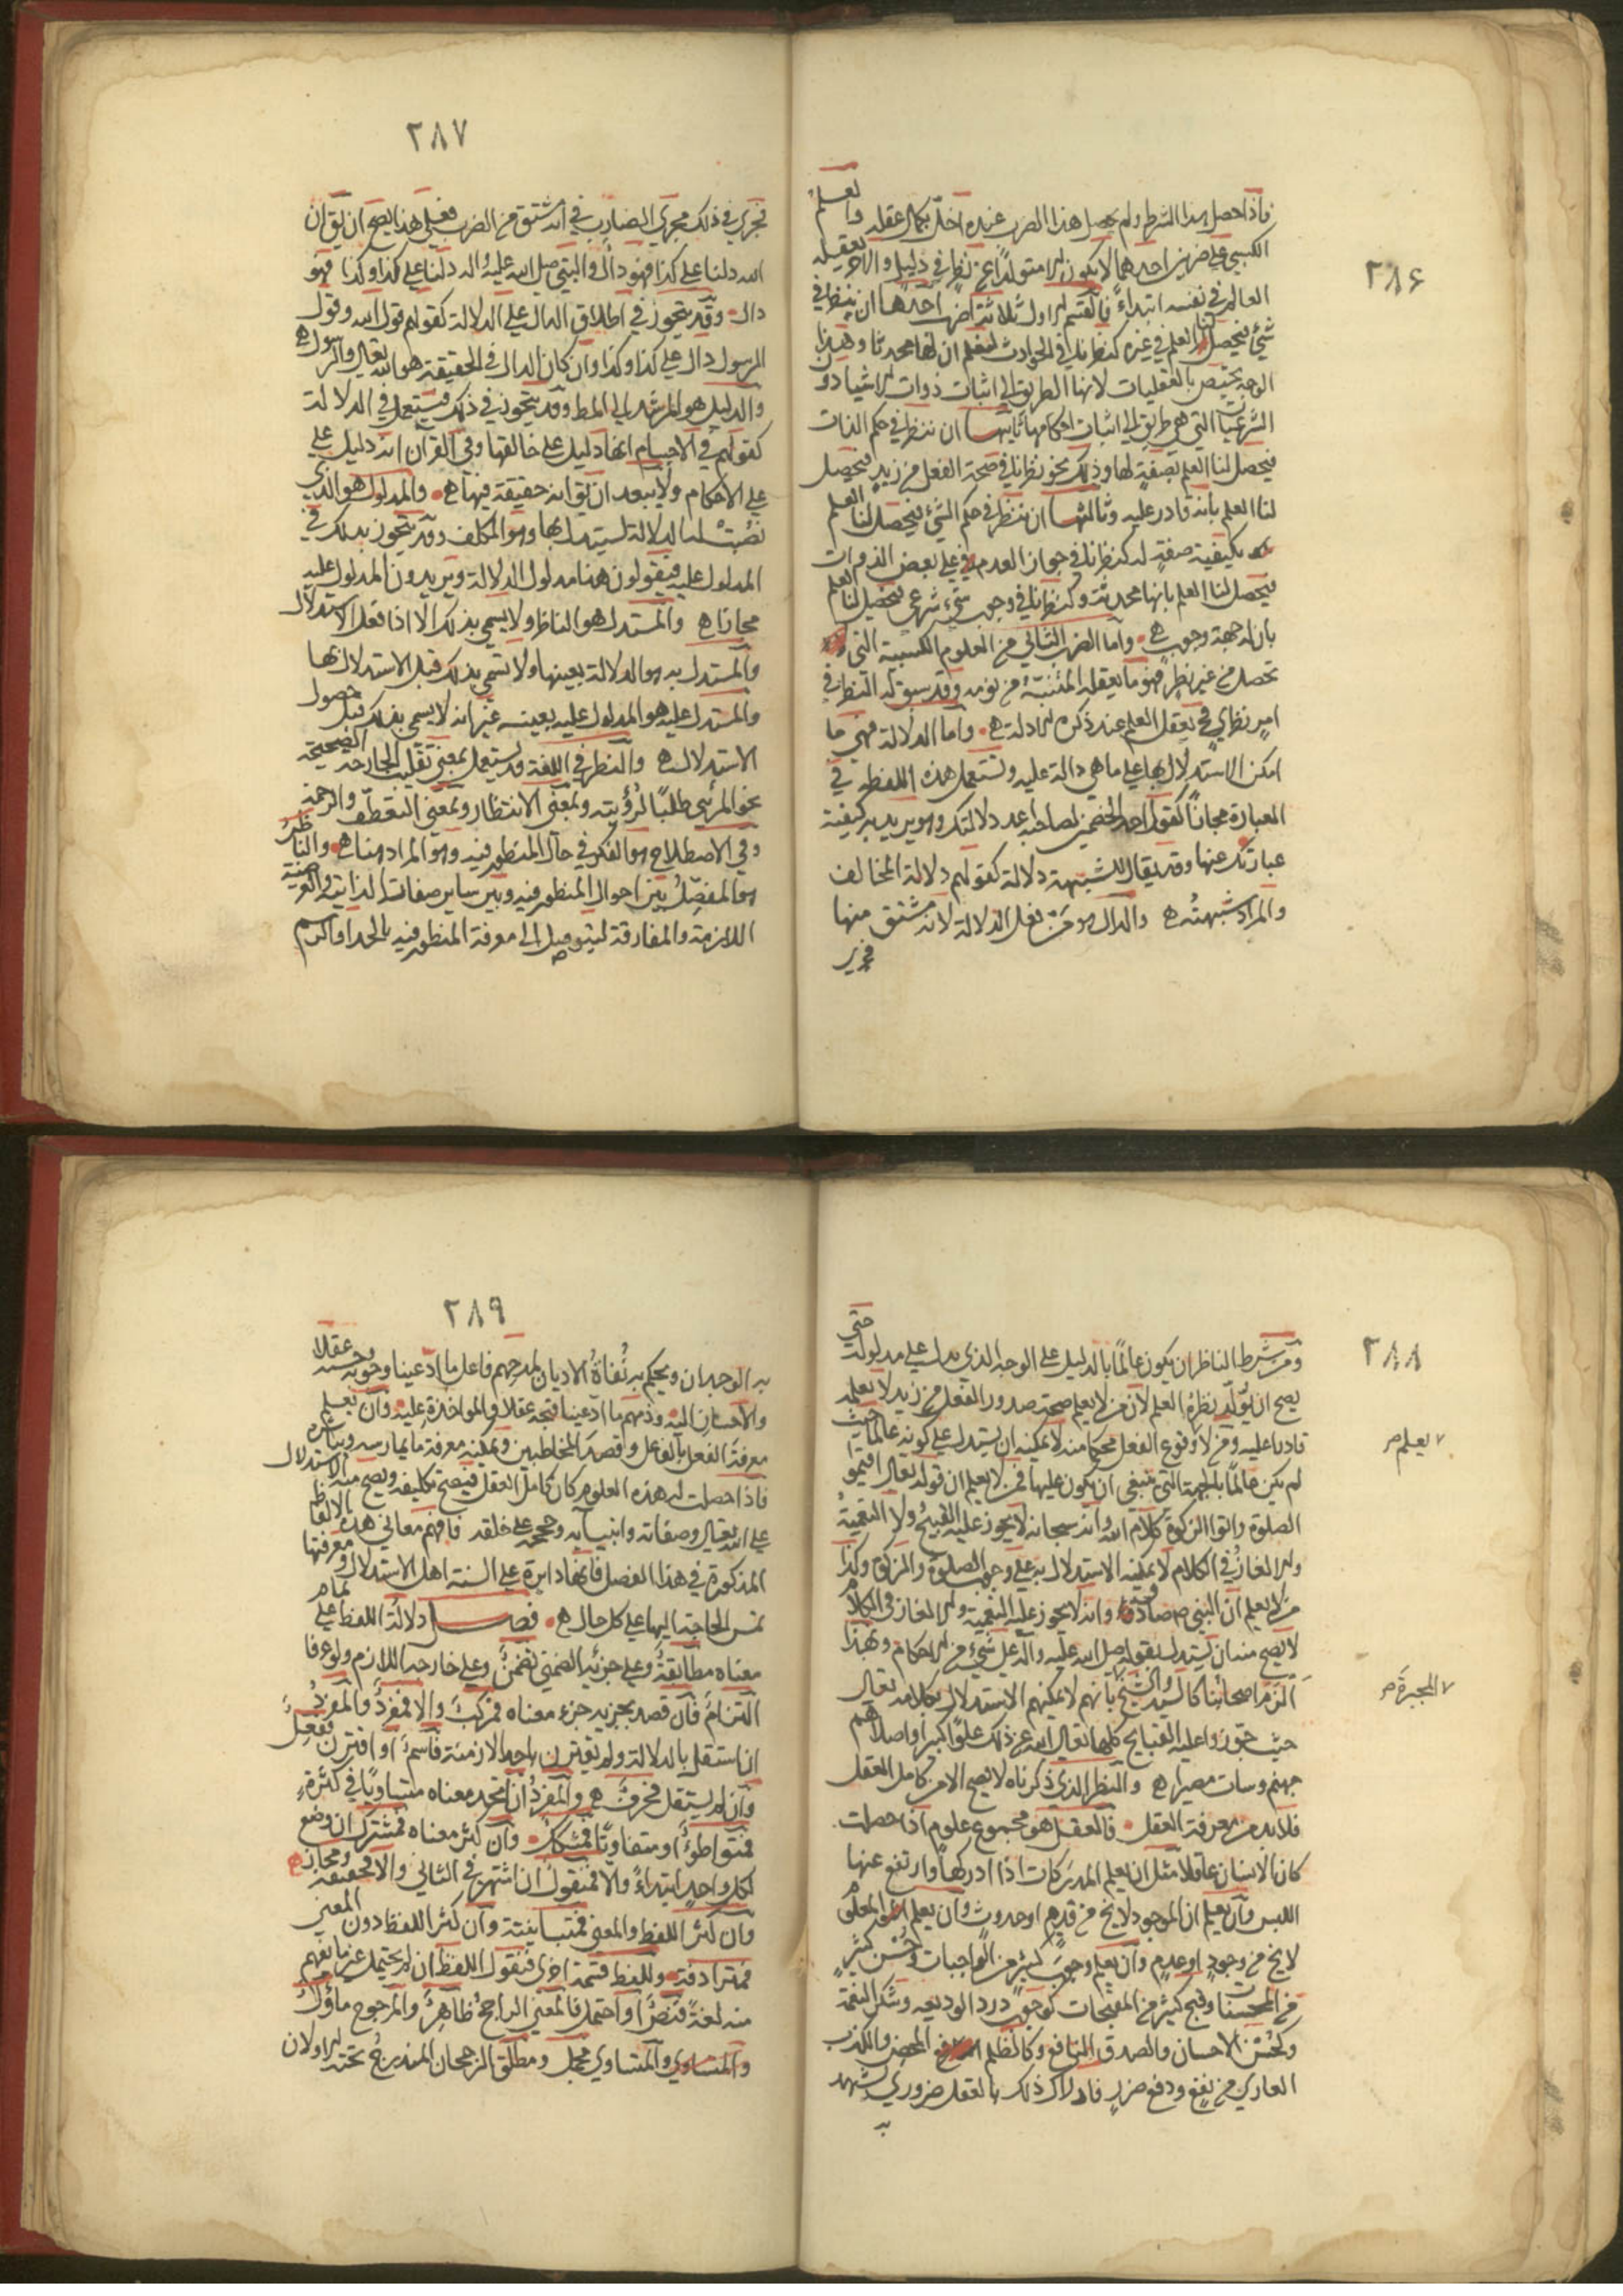 ٢٨۶
فاذا حصل هذا الشرط ولم يحصل هذا الضرب عنده اختل بكمال عقله والعلم
الكسبي على ضربين احدهما لا يكون متولدا عن نظر في دليل والاخر يفعله
العالم في نفسه ابتداء فالقسم الاول ثلاثة اضرب احدها ان ننظر في
شيء فيحصل لنا العلم في غيره كنظرنا في الحوادث لنعلم ان لها محدثا وهذا
الوجه يختص بالعقليات لانها الطريق الى اثبات ذوات الاشياء دون
الشرعيات التي هي طريق الى اثبات احكامها ثانيها ان ننظر في حكم الذات
فيحصل لنا العلم بصفة لها وذلك نحو نظرنا في صحة الفعل من زيد فيحصل
لنا العلم بانه قادر عليه وثالثها ان ننظر في حكم الشيء فيحصل لنا العلم
بكيفية صفة له كنظرنا في جواز العدم على بعض الذوات
فيحصل لنا العلم بانها محدثة وكنظرنا في وجوب شيء شرعي فيحصل لنا العلم
بان له جهة وجوب واما الضرب الثاني من العلوم الكسبية التي
تحصل من غير نظر فهو ما يفعله المنتبه من نومه وقد سبق له النظر في
امر نظري فيفعل العلم عند ذكره الادلة واما الدلالة فهي ما
امكن الاستدلال بها على ما هي دالة عليه وتستعمل هذه اللفظة في
العبارة مجازا كقول احد الخصمين لصاحبه اعد دلالتك وهو يريد به كيفية
عبارتك عنها وقد يقال للشبهة دلالة كقولهم دلالة المخالف
والمراد شبهته والدال هو من فعل الدلالة لانه مشتق منها
فجري
٢٨٧
فجرى في ذلك مجرى الضارب في انه مشتق من الضرب فعلى هذا يصح ان يقال ان
الله دلنا على كذا فهو دال والنبي صلى الله عليه واله دلنا على كذا وكذا فهو
دال وقد يتجوز في اطلاق الدال على الدلالة كقولهم قول الله وقول
الرسول دال على كذا وكذا وان كان الدال في الحقيقة هو الله تعالى والرسول
والدليل هو المرشد الى المط وقد يتجوز في ذلك فيستعمل في الدلالة
كقولهم في الاجسام انها دليل على خالقها وفي القرآن انه دليل على
على الاحكام ولا يبعد ان يق انه حقيقة فيهما والمدلول هو الذي
نصبت له الدلالة ليستدل بها وهو المكلف وقد يتجوز بذلك في
المدلول عليه فيقولون هذا مدلول الدلالة ويريدون المدلول عليه
مجازا والمستدل هو الناظر ولا يسمى بذلك الا اذا فعل الاستدلال
والمستدل به هو الدلالة بعينها ولا تسمى بذلك قبل الاستدلال بها
والمستدل عليه هو المدلول عليه بعينه غير انه لا يسمى بذلك قبل حصول
الاستدلال والنظر في اللغة قد يستعمل بمعنى تقليب الجارحة الصحيحة
نحو المرئي طلبا لرؤيته وبمعنى الانتظار وبمعنى التعطف والرحمة
وفي الاصطلاح هو الفكر في حال المنظور فيه وهو المراد هنا والناظر
هو المفصل بين احوال المنظور فيه وبين ساير صفاته الذاتية والعرضية
اللازمة والمفارقة ليتوصل الى معرفة المنظور فيه بالحد او الرسم
٢٨٨
ومن شرط الناظر ان يكون عالما بالدليل على الوجه الذي يدل على مدلوله حتى
يصح ان يولد نظره العلم لان من لا يعلم صحة صدور الفعل من زيد لا يعلمه
قادرا عليه ومن لا وقوع الفعل محكما منه لا يمكنه ان يستدل على كونه عالما حيث
٧ يعلم صح
لم يكن عالما بالجهة التي ينبغي ان يكون عليها فمن لا يعلم ان قوله تعالى اقيموا
الصلوة واتوا الزكوة كلام الله وانه سبحانه لا يجوز عليه القبيح ولا التعمية
ولا الالغاز في الكلام لا يمكنه الاستدلال به على وجوب الصلوة والزكوة وكذا
من لا يعلم ان النبي ص صادق وانه لا يجوز عليه التعمية والالغاز في الكلام
لا يصح منه ان يستدل بقوله صلى الله عليه واله على شيء من الاحكام وبهذا
الزم اصحابنا كالسيد والشيخ بانهم لا يمكنهم الاستدلال بكلامه تعالى
٧ المجبرة صح
حيث جوزوا عليه القبايح كلها تعالى الله عن ذلك علوا كبيرا واصلاهم
جهنم وسات مصيرا والنظر الذي ذكرناه لا يصح الا من كامل العقل
فلا بد من معرفة العقل فالعقل هو مجموع علوم اذا حصلت
كان الانسان عاقلا مثل ان يعلم المدركات اذا ادركها وارتفع عنها
اللبس وان يعلم ان الموجود لا يخ من قدم او حدوث وان يعلم المعلوم
لا يخ من وجود او عدم وان يعلم وجوب كثير من الواجبات وحسن كثير
من المحسنات وقبح كثير من المقبحات كوجوب رد الوديعه وشكر النعمة
وكحسن الاحسان والصدق النافع وكالظلم المحض والكذب
العاري من نفع ودفع ضرر فادراك ذلك بالعقل ضروري يشهد
به
٢٨٩
به الوجدان ويحكم به نفاة الاديان لمدحهم فاعل ما ادعينا وجوبه وحسنه عقلا
والاحسان اليه وذمهم ما ادعينا قبحه عقلا والمواخذة عليه وان يعلم
معرفة الفعل بالفاعل وقصد المخاطبين ويمكنه معرفة ما يمارسه ويباشره
فاذا حصلت له هذه العلوم كان كامل العقل فيصح تكليفه ويصح منه الاستدلال
على الله تعالى وصفاته وانبيائه وحججه على خلقه فافهم معاني هذه الالفاظ
المذكورة في هذا الفصل فانها دايرة على السنة اهل الاستدلال ومعرفتها
تمس الحاجة اليها على كل حال فصل دلالة اللفظ على تمام
معناه مطابقة وعلى جزئه الضمني تضمن وعلى خارجه اللازم ولو عرفا
التزام فان قصد بجزئه جزء معناه فمركب والا فمفرد والمفرد
ان استقل بالدلالة ولم يقترن باحد الازمنة فاسم او اقترن ففعل
وان لم يستقل فحرف والمفرد ان اتحد معناه متساويا في كثرة
فمتواطئ او متفاوتا فمشكك وان كثر معناه فمشترك ان وضع
لكل واحد ابتداء والا فمنقول ان اشتهر في الثاني والا فحقيقة ومجاز
وان كثر اللفظ والمعنى فمتباينة وان كثر اللفظ دون المعنى
فمترادفة وللفظ قسمة اخرى فنقول اللفظ ان لم يحتمل غير ما يفهم
منه لغة فنص او احتمل فالمعنى الراجح ظاهر والمرجوح ماؤل
والمتساوي والمتساوي مجمل ومطلق الرجحان المندرج تحته الاولان